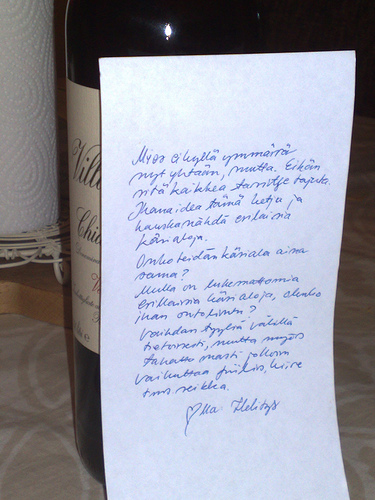 Villa
Chia
Mies ei kyllä ymmärrä
nyt yhtään, mutta. Eihän
sitä kaikkea tarvitse tajuta.
Ihana idea tämä ketju ja
hauska nähdä erilaisia
käsialoja.
Onko teidän käsiala aina
sama?
Mulla on lukemattomia
erillaisia käsialoja, olenko
ihan outolintu?
Vaihdan tyyliä välillä
tietoisesti, mutta myös
tahattomasti jolloin
vaikuttaa fiilis, kiire
tms seikka.